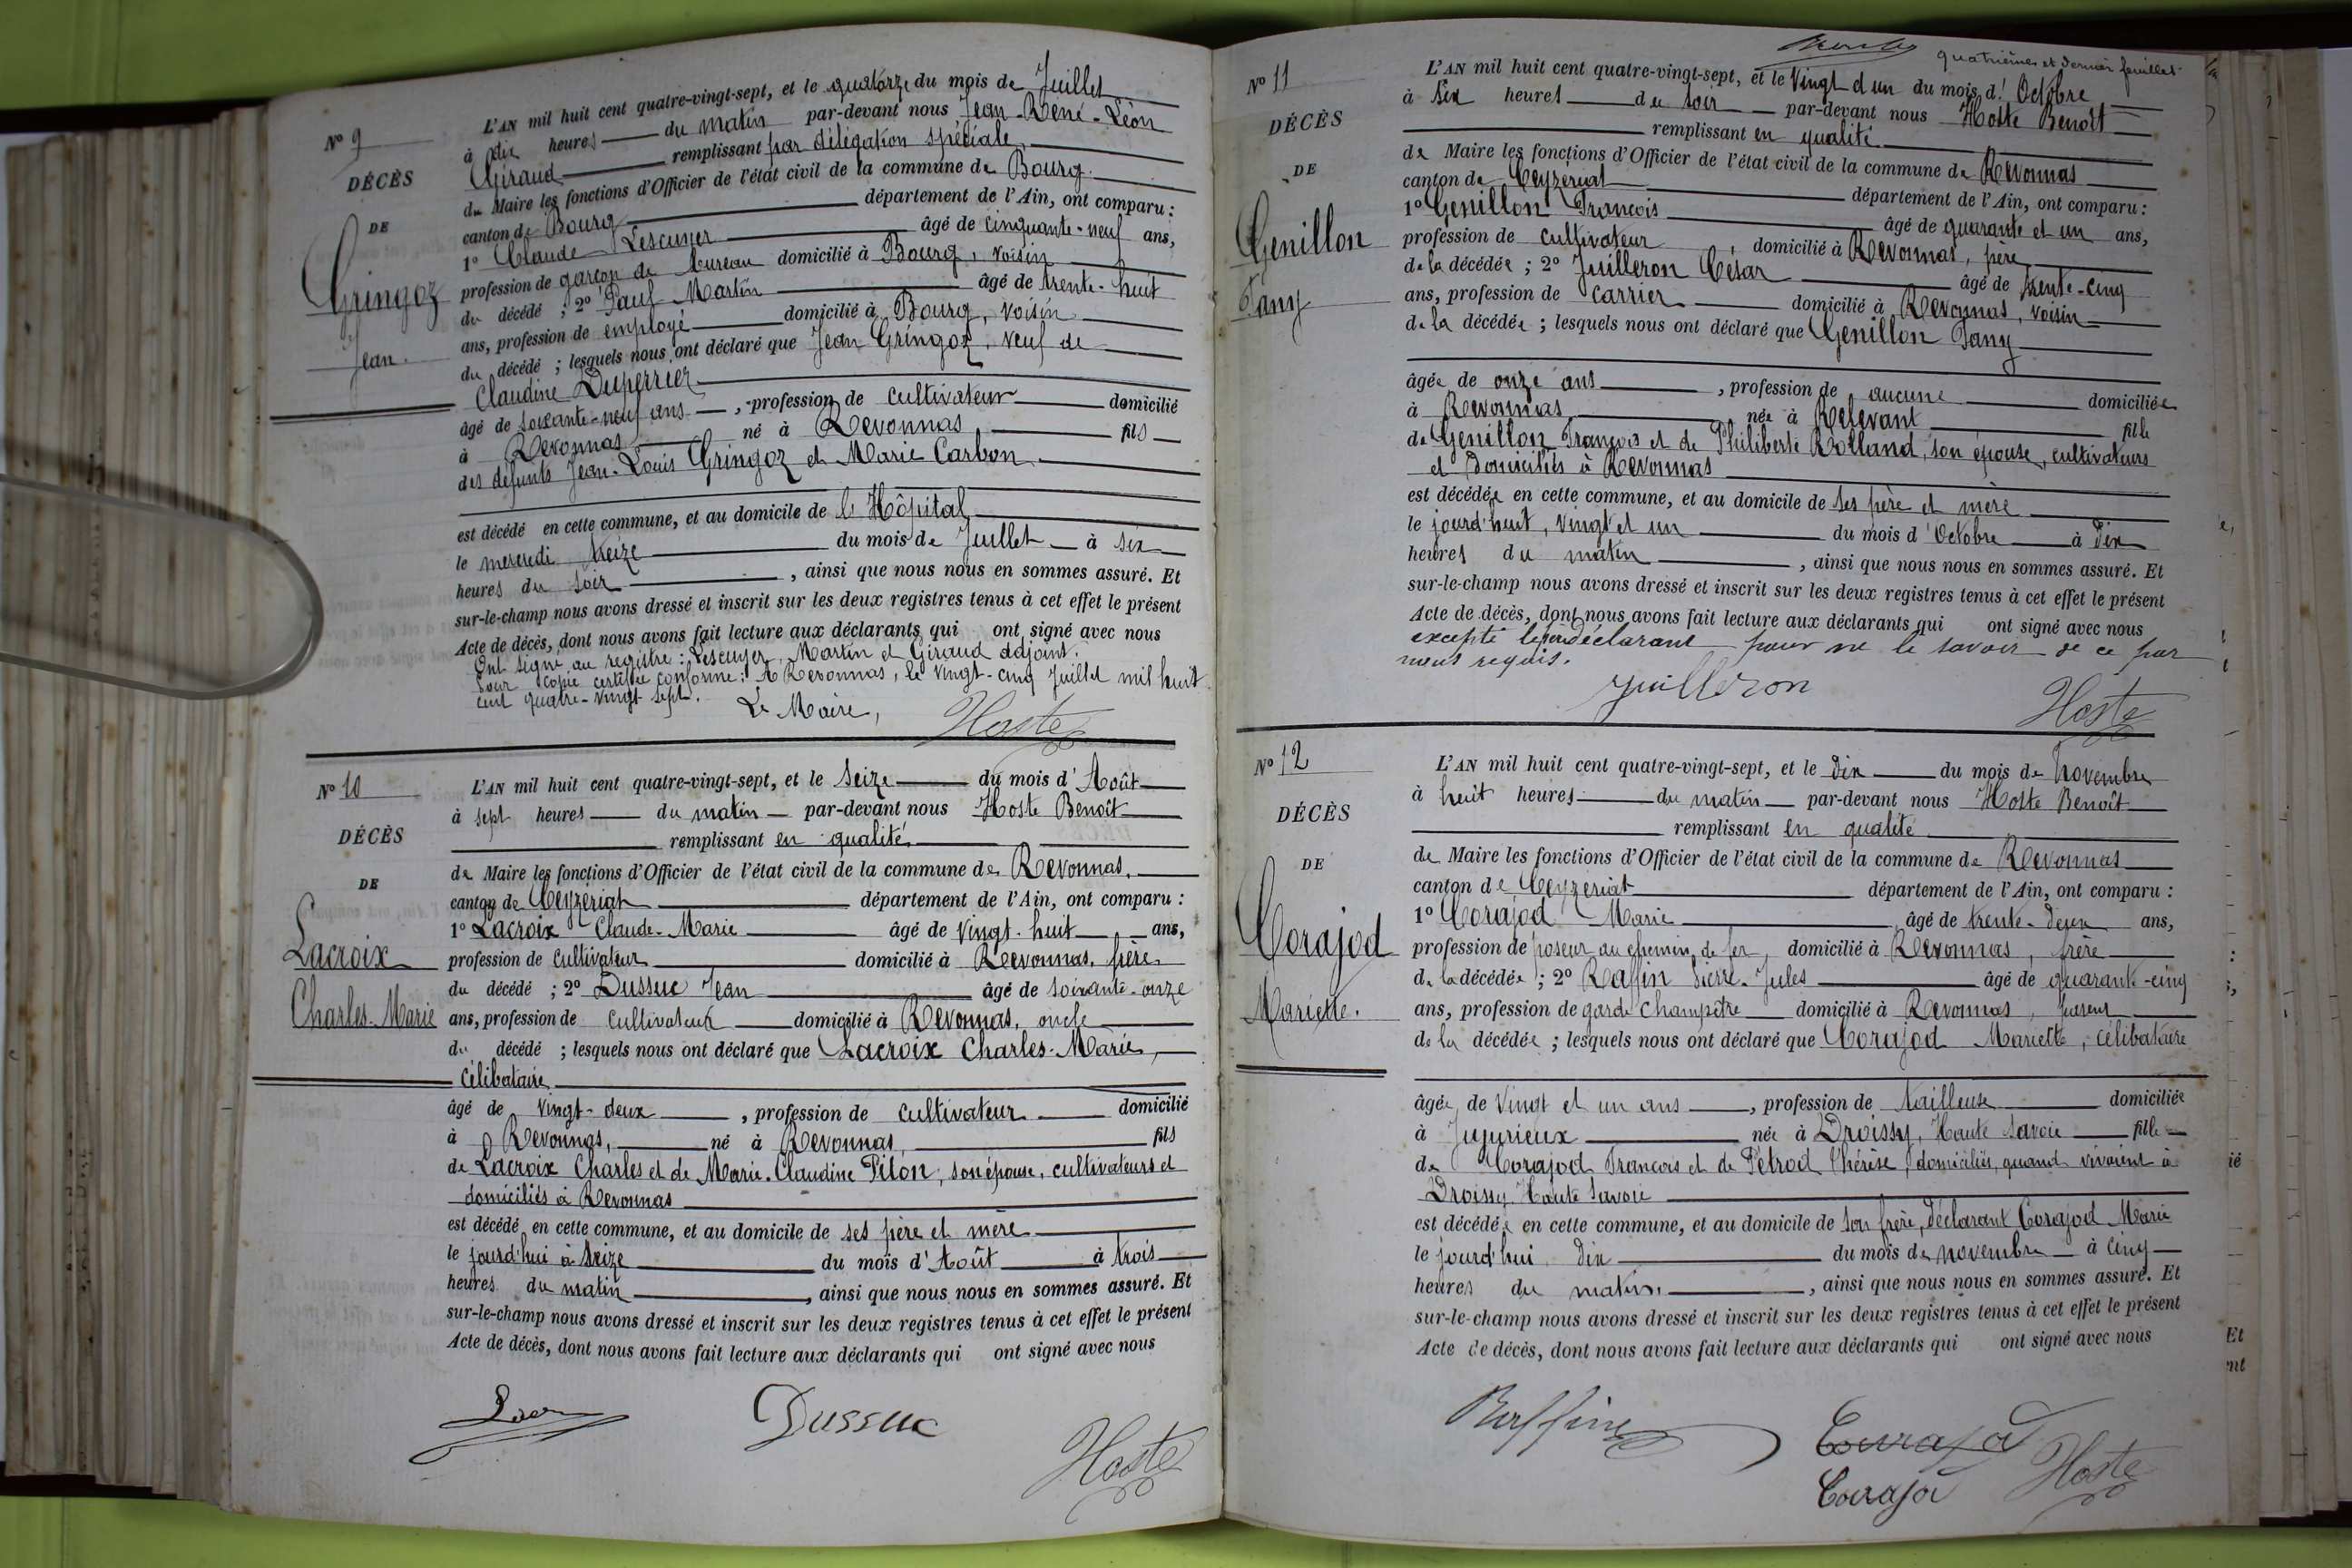 N° 9
DÉCÈS
DE
Gringoz
Jean.
L'AN mil huit cent quatre-vingt-sept, et le quatorze du mois de Juillet
à dix heures du matin par-devant nous Jean-René-Léon
Giraud remplissant par délégation spéciale
de Maire les fonctions d'Officier de l'état civil de la commune de Bourg
canton de Bourg département de l'Ain, ont comparu :
1° Claude Lescuyer âgé de cinquante-neuf ans,
profession de garçon de bureau domicilié à Bourg, voisin
du décédé ; 2° Paul Martin âgé de trente-huit
ans, profession de employé domicilié à Bourg, voisin
du décédé ; lesquels nous ont déclaré que Jean Gringoz, veuf de
Claudine Duperrier
âgé de soixante-neuf ans, profession de cultivateur domicilié
à Revonnas né à Revonnas fils
des défunts Jean-Louis Gringoz et Marie Carbon
est décédé en cette commune, et au domicile de l'Hôpital
le mercredi treize du mois de Juillet à six
heures du soir, ainsi que nous nous en sommes assuré. Et
sur-le-champ nous avons dressé et inscrit sur les deux registres tenus à cet effet le présent
Acte de décès, dont nous avons fait lecture aux déclarants qui ont signé avec nous
Ont signé au registre : Lescuyer, Martin et Giraud adjoint.
Pour copie certifiée conforme : A Revonnas, le vingt-cinq Juillet mil huit
cent quatre-vingt sept.
Le Maire,
Hoste
N° 10
DÉCÈS
DE
Lacroix
Charles-Marie
L'AN mil huit cent quatre-vingt-sept, et le seize du mois d'Août
à sept heures du matin par-devant nous Hoste Benoît
remplissant en qualité
de Maire les fonctions d'Officier de l'état civil de la commune de Revonnas.
canton de Ceyzériat département de l'Ain, ont comparu :
1° Lacroix Claude-Marie âgé de vingt-huit ans,
profession de cultivateur domicilié à Revonnas. frère
du décédé ; 2° Dussuc Jean âgé de soixante-onze
ans, profession de cultivateur domicilié à Revonnas, oncle
du décédé ; lesquels nous ont déclaré que Lacroix Charles-Marie,
célibataire
âgé de vingt-deux, profession de cultivateur domicilié
à Revonnas, né à Revonnas, fils
de Lacroix Charles et de Marie-Claudine Pilon, son épouse, cultivateurs et
domiciliés à Revonnas
est décédé en cette commune, et au domicile de ses père et mère
le jourd'hui à seize du mois d'Août à trois
heures du matin, ainsi que nous nous en sommes assuré. Et
sur-le-champ nous avons dressé et inscrit sur les deux registres tenus à cet effet le présent
Acte de décès, dont nous avons fait lecture aux déclarants qui ont signé avec nous
Dussuc
Hoste
quatrième et dernier feuillet
N° 11
DÉCÈS
DE
Genillon
Fany
L'AN mil huit cent quatre-vingt-sept, et le vingt d un du mois d'Octobre
à six heures du soir par-devant nous Hoste Benoît
remplissant en qualité
de Maire les fonctions d'Officier de l'état civil de la commune de Revonnas
canton de Ceyzériat département de l'Ain, ont comparu :
1° Genillon François âgé de quarante et un ans,
profession de cultivateur, domicilié à Revonnas, père
de la décédée ; 2° Juilleron César âgé de trente-cinq
ans, profession de carrier domicilié à Revonnas, voisin
de la décédée ; lesquels nous ont déclaré que Genillon Fany
âgée de onze ans, profession de aucune domiciliée
à Revonnas née à Relevant fille
de Genillon François et de Philiberte Rolland, son épouse, cultivateurs
et domiciliés à Revonnas
est décédée en cette commune, et au domicile de ses père et mère
le jourd'huit, vingt et un du mois d'Octobre à dix
heures du matin, ainsi que nous nous en sommes assuré. Et
sur-le-champ nous avons dressé et inscrit sur les deux registres tenus à cet effet le présent
Acte de décès, dont nous avons fait lecture aux déclarants qui ont signé avec nous
excepté le déclarant pour ne le savoir de ce par
nous requis.
Juilleron
Hoste
N° 12
DÉCÈS
DE
Corajod
Mariette.
L'AN mil huit cent quatre-vingt-sept, et le dix du mois de Novembre
à huit heures du matin par-devant nous Hoste Benoît
remplissant en qualité
de Maire les fonctions d'Officier de l'état civil de la commune de Revonnas
canton de Ceyzeriat département de l'Ain, ont comparu :
1° Corajod Marie âgé de trente-deux ans,
profession de poseur au chemin de fer, domicilié à Revonnas, frère
de la décédée ; 2° Rafin Pierre-Jules âgé de quarante-cinq
ans, profession de garde champêtre domicilié à Revonnas,
de la décédée ; lesquels nous ont déclaré que Corajod Mariette, célibataire
âgée de vingt et un ans, profession de tailleuse domiciliée
à Jujurieux née à Droissy, Haute Savoie fille
de Corajod François et de Petrod Thérèse, domiciliés, quand vivaient à
Droissy. Haute Savoie
est décédée en cette commune, et au domicile de son frère, déclarant Corajod Marie
le jourd'hui dix du mois de novembre à cinq
heures du matin, ainsi que nous nous en sommes assuré. Et
sur-le-champ nous avons dressé et inscrit sur les deux registres tenus à cet effet le présent
Acte de décès, dont nous avons fait lecture aux déclarants qui ont signé avec nous
Raffin
Corajod
Corajod
Hoste